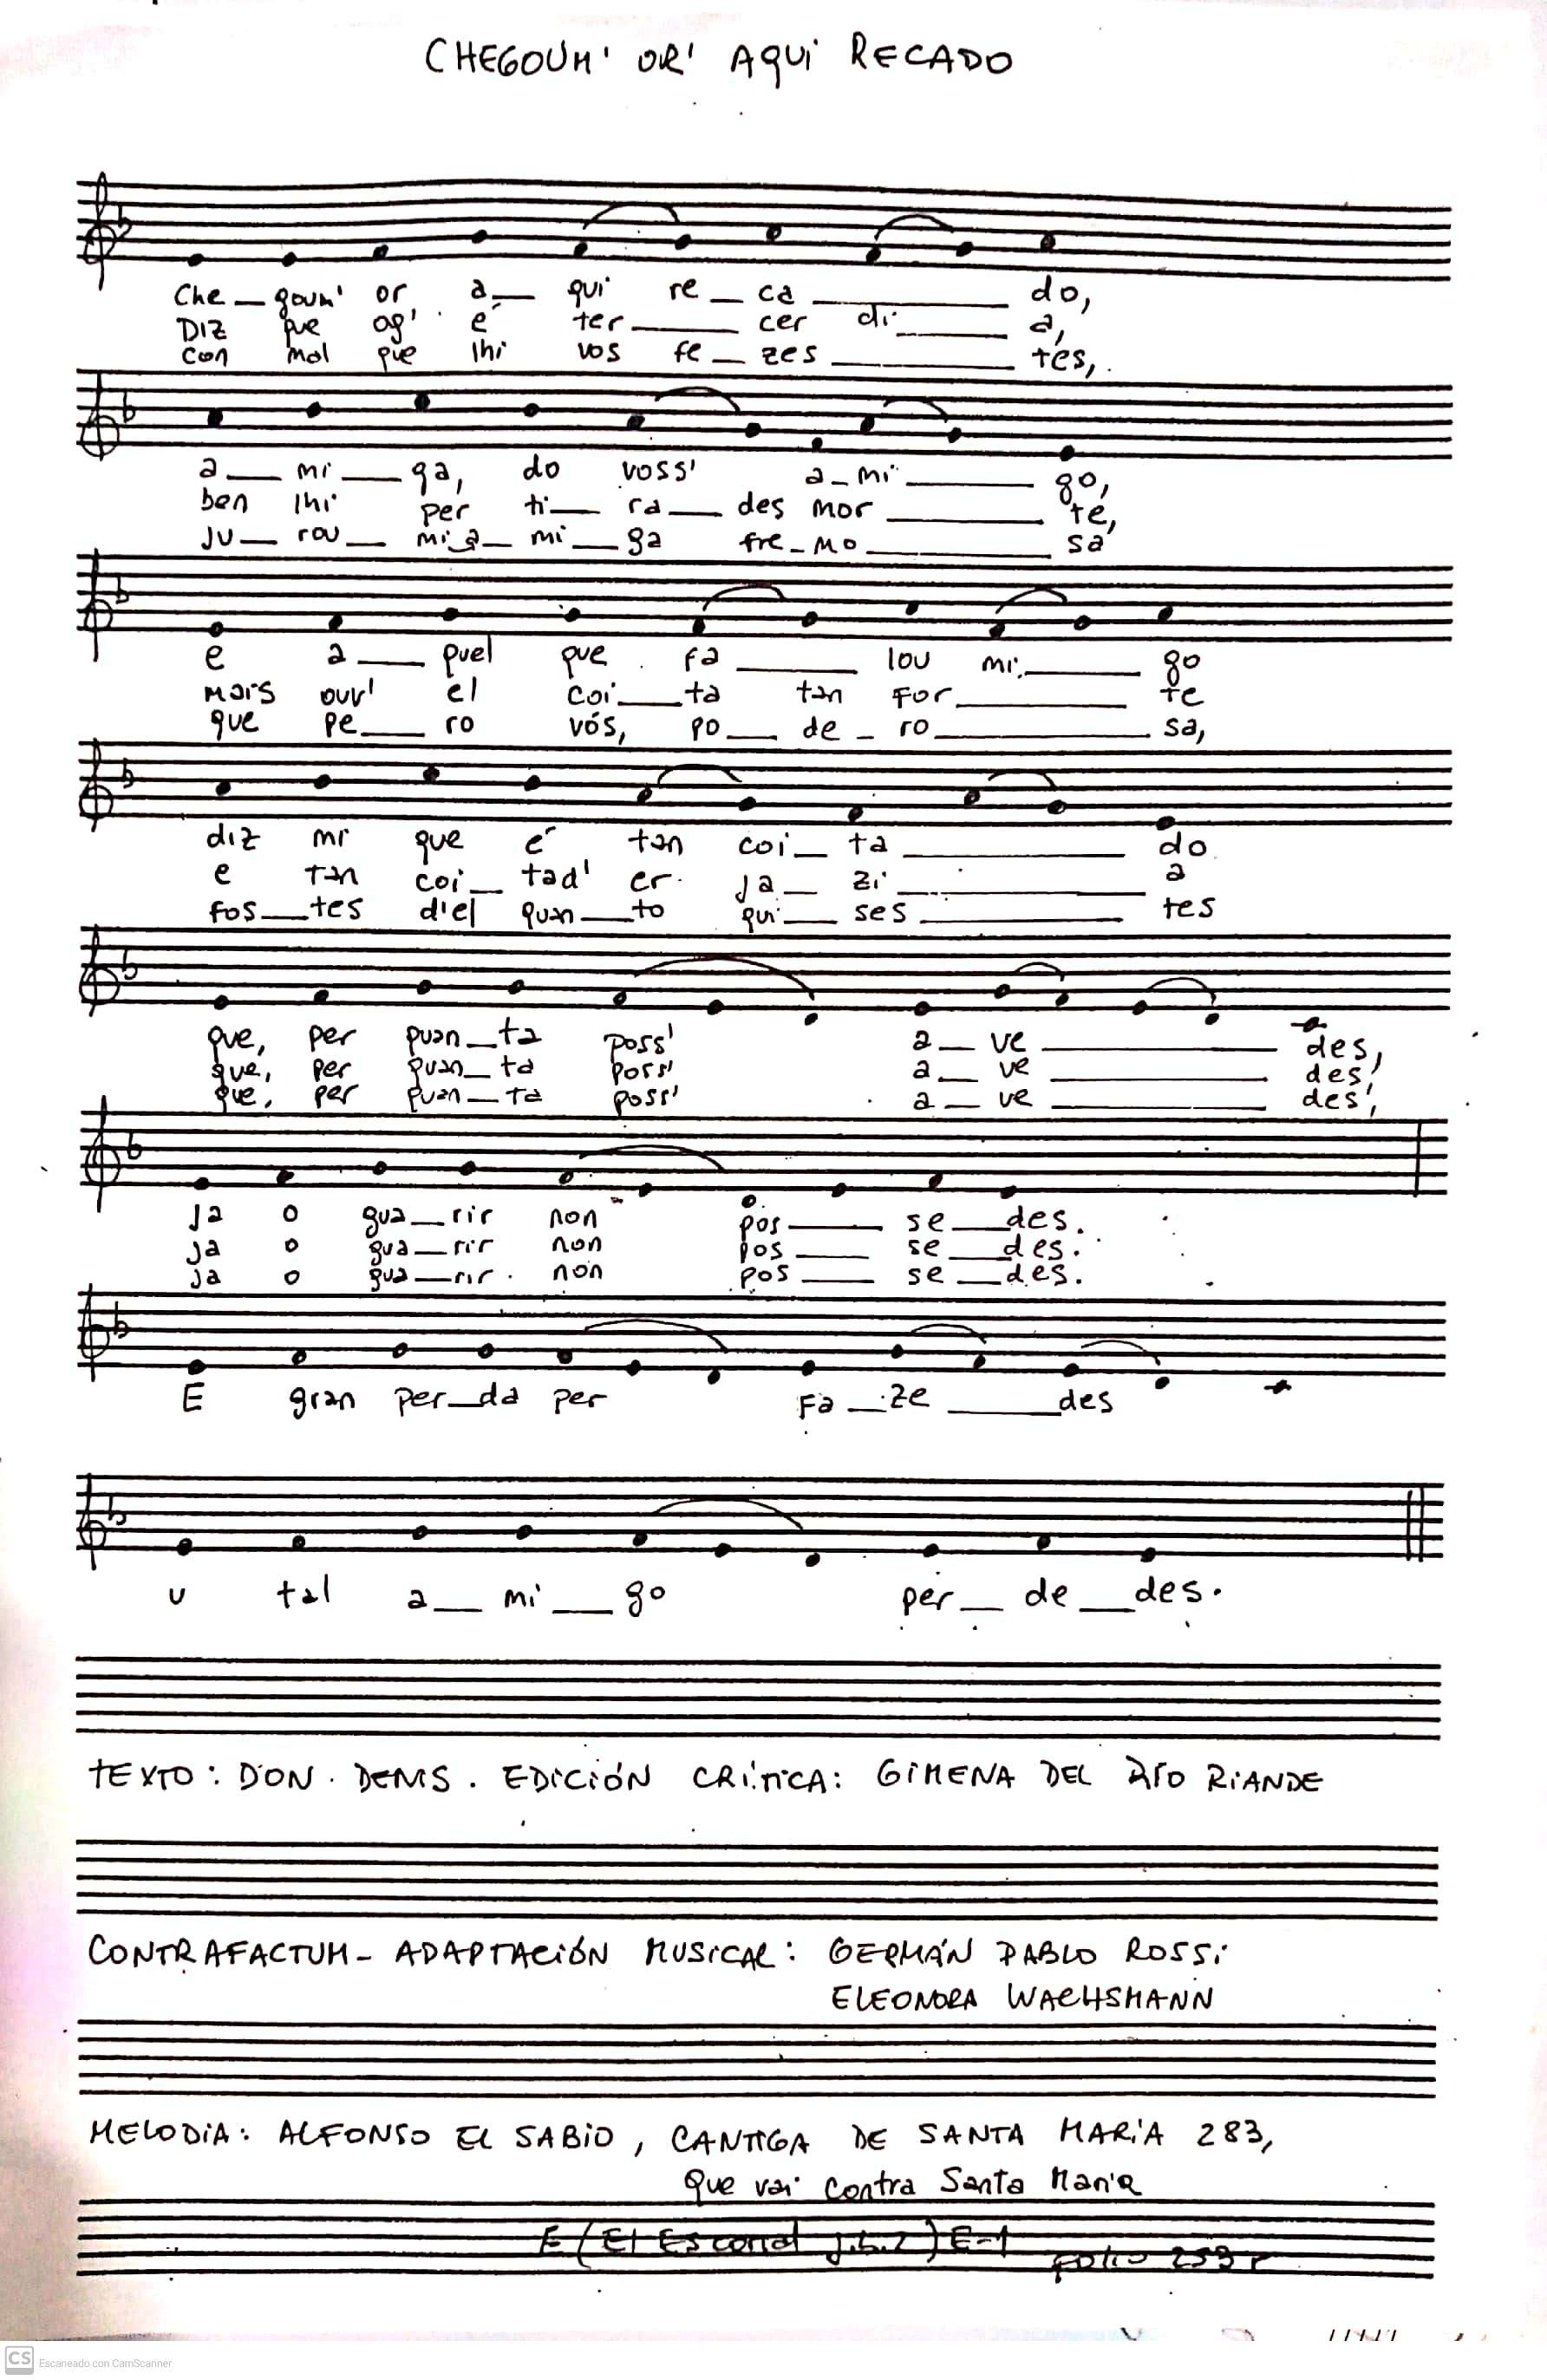 CHEGOUM' OR' AQUI RECADO
Che_goum' or, a_ qui re_ca_do,
Diz que og' é ter_cer di_a,
con mal que lhi vos fe_zes_tes,
a_mi_ga, do voss' a_mi_go,
ben lhi per ti_ra_des mor_te,
ju_rou_ mi a_mi_ga fre_mo_sa
e a_quel que fa_lou mi_go
mais ouv' el coi_ta tan for_te
que pe_ro vós, po_de_ro_sa,
diz mi que é tan coi_ta_do
e tan coi_tad' er ja_zi_a
fos_tes d'el quan_to qui_ses_tes
que, per quan_ta poss' a_ve_des,
que, per quan_ta poss' a_ve_des,
que, per quan_ta poss' a_ve_des,
ja o gua_rir non pos_se_des.
ja o gua_rir non pos_se_des.
ja o gua_rir non pos_se_des.
E gran per_da per fa_ze_des
u tal a_mi_go per_de_des.
TEXTO: DON DENIS. EDICIÓN CRÍTICA: GIMENA DEL RÍO RIANDE
CONTRAFACTUM - ADAPTACIÓN MUSICAL: GERMÁN PABLO ROSSI
ELEONORA WACHSMANN
MELODIA: ALFONSO EL SABIO, CANTIGA DE SANTA MARÍA 283,
Que vai contra Santa Maria
E (El Escorial j.b.2) E-1 folio 253 r
CS Escaneado con CamScanner